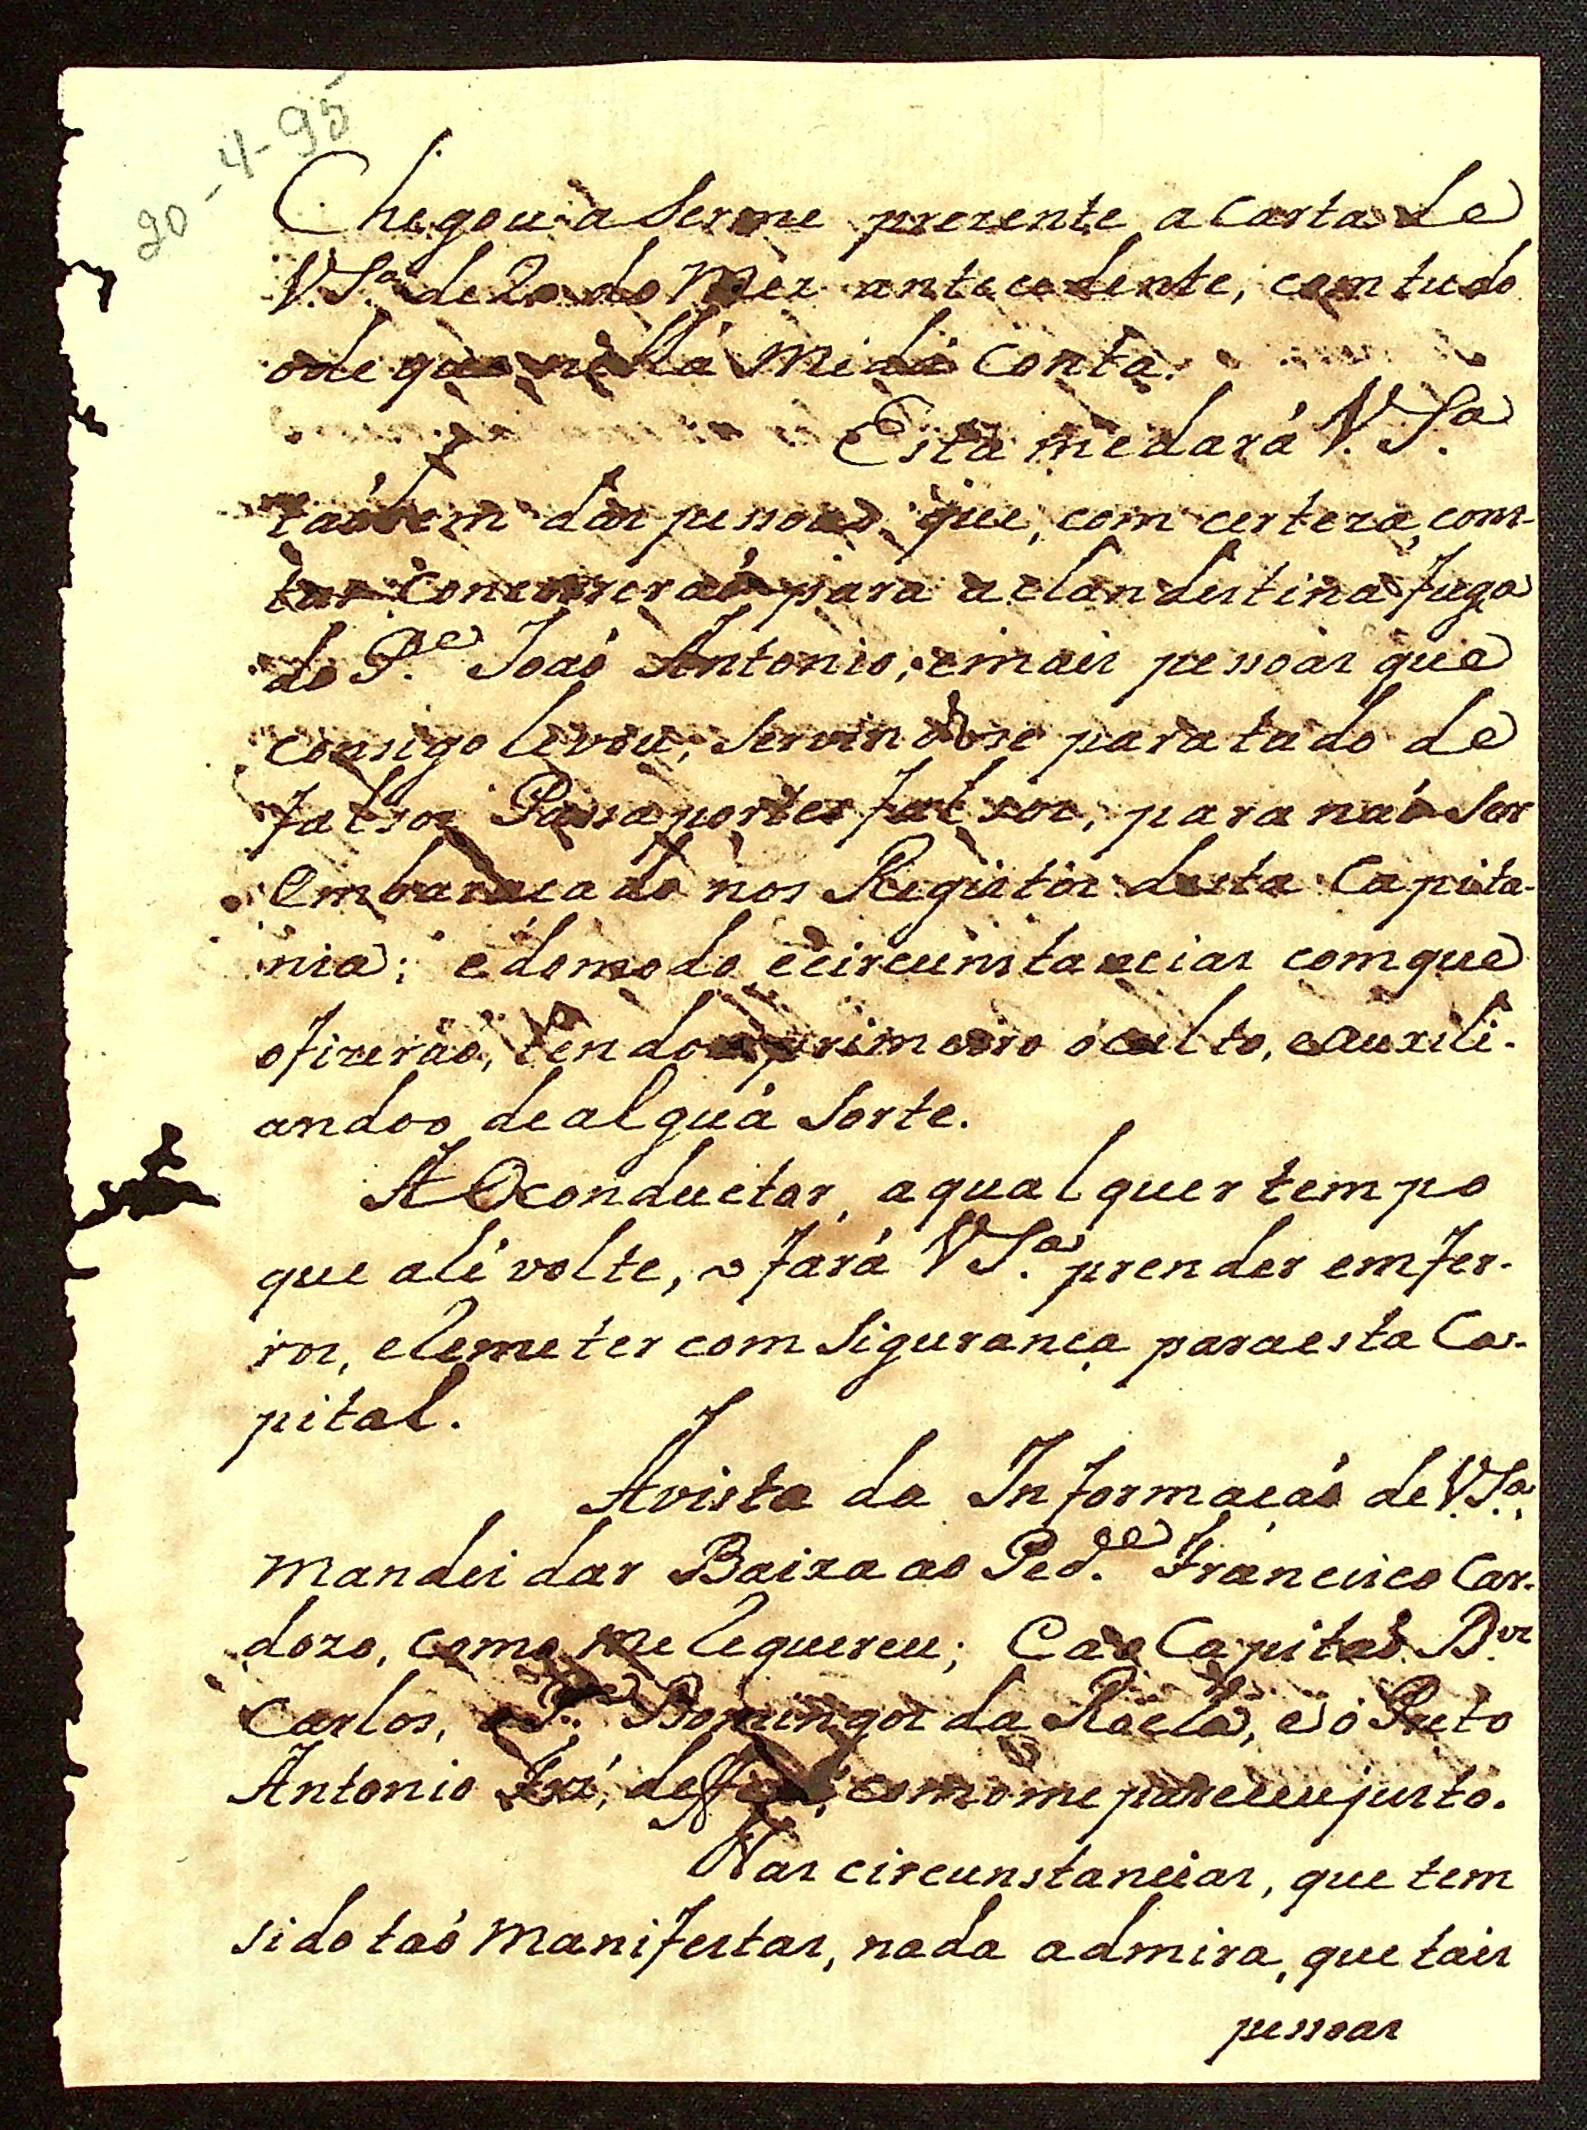 20-4-95
Chegou a Serme prezente a Carta de
V. S.ª de 20 do Mez antecedente, com tudo
o de que nella Me dá Conta.
Esta me dará V. S.ª
taóbem das pessoas, que, com certeza, cons-
tar Concorreraó para a clandestina fuga
do P.e Joaó Antonio, e mais pessoas que
consigo levou, Servindose para tudo de
falsos Passaportes falsos, para naó Ser
embaraçado nos Registos desta Capita-
nia; e do modo e circunstancias com que
o fizeraó, tendo o primeiro óculto, e auxili-
andoo de alguá Sorte.
A O conductor, a qual quer tempo
que ali volte, o fará V S.ª prender em fer-
ros, e Remeter com Sigurança para esta Ca-
pital.
A vista da Informaçaó de V. S.ª,
mandei dar Baixa ao Ped.e Francisco Car-
dozo, como me Requereu; E ao Capitaó
Carlos, Domingos da e o Preto
Antonio como me pareceu justo.
Nas circunstancias, que tem
sido taó manifestas, nada admira, que tais
pessoas